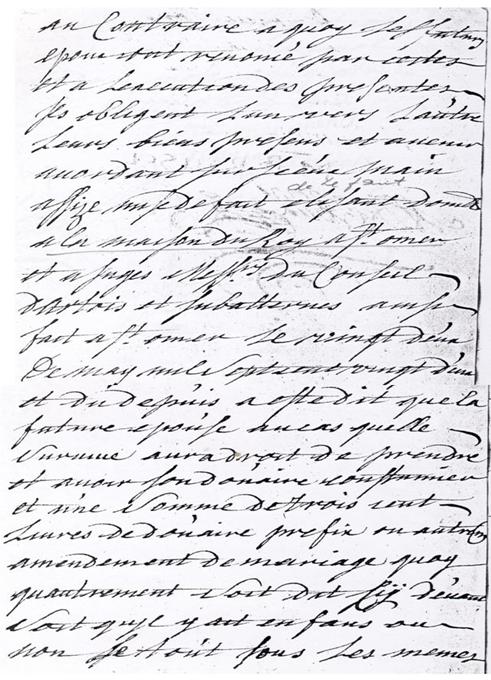 au Contraire a quoy lesd futurs
epoux ont renoncé par cestes
et a lexecution des presentes
Ils obligent l'un vers l'autre
Leurs biens presens et avenir
accordant sur iceux main
assize mise de fait elisant domile
de lesfaut
a la maison du Roy a St omer
et a juges Messrs du Conseil
D'artois et subalternes ainsy
fait a St omer le vingt deux
De may mile sept cent vingt deux
et du depuis a esté dit que La
future epouse au cas quelle
survive aura droit de prendre
et avoir son douaire coustumier
et une somme de trois cent
Livres de douaire prefix ou autres
amendement de mariage quoy
quautrement soit dit cij devant
soit qu'il y ait enfans ou
non le tout sous les memes